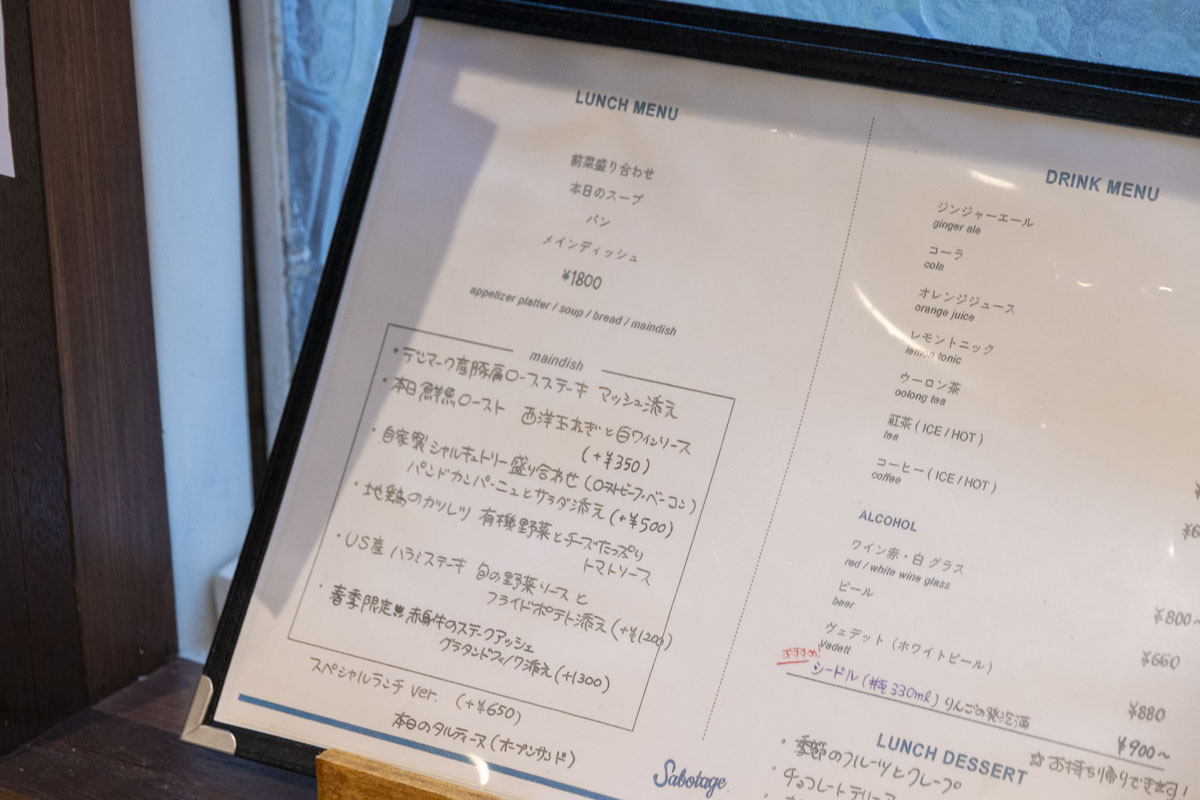 LUNCH MENU
前菜盛り合わせ
本日のスープ
パン
メインディッシュ
¥1800
appetizer platter / soup / bread / maindish
maindish
・デンマーク産豚肩ロースステーキ マッシュ添え
・本日鮮魚ロースト 西洋玉ねぎと白ワインソース
(+¥350)
・自家製シャルキュトリー盛り合わせ(ローストビーフ・ベーコン)
パンドカンパーニュとサラダ添え(+¥500)
・地鶏のカツレツ 有機野菜とチーズたっぷり
トマトソース
・US産 ハラミステーキ 旬の野菜ソースと
フライドポテト添え(+¥1200)
・春季限定!! 赤身牛のステークアッシェ
グラタンドフィノワ添え(+1300)
スペシャルランチ ver. (+¥650)
本日のタルティーヌ(オープンサンド)
Sabotage
DRINK MENU
ジンジャーエール
ginger ale
コーラ
cola
オレンジジュース
orange juice
レモントニック
lemon tonic
ウーロン茶
oolong tea
紅茶 ( ICE / HOT )
tea
コーヒー ( ICE / HOT )
coffee
ALCOHOL
ワイン赤・白 グラス
red / white wine glass
¥800~
ビール
beer
¥660
ヴェデット (ホワイトビール)
Vedett
¥880
おすすめ!
シードル(瓶330ml) りんごの発泡酒
¥900~
LUNCH DESSERT
☆お持ち帰りできます!
・季節のフルーツとクレープ
・チョコレートテリーヌ